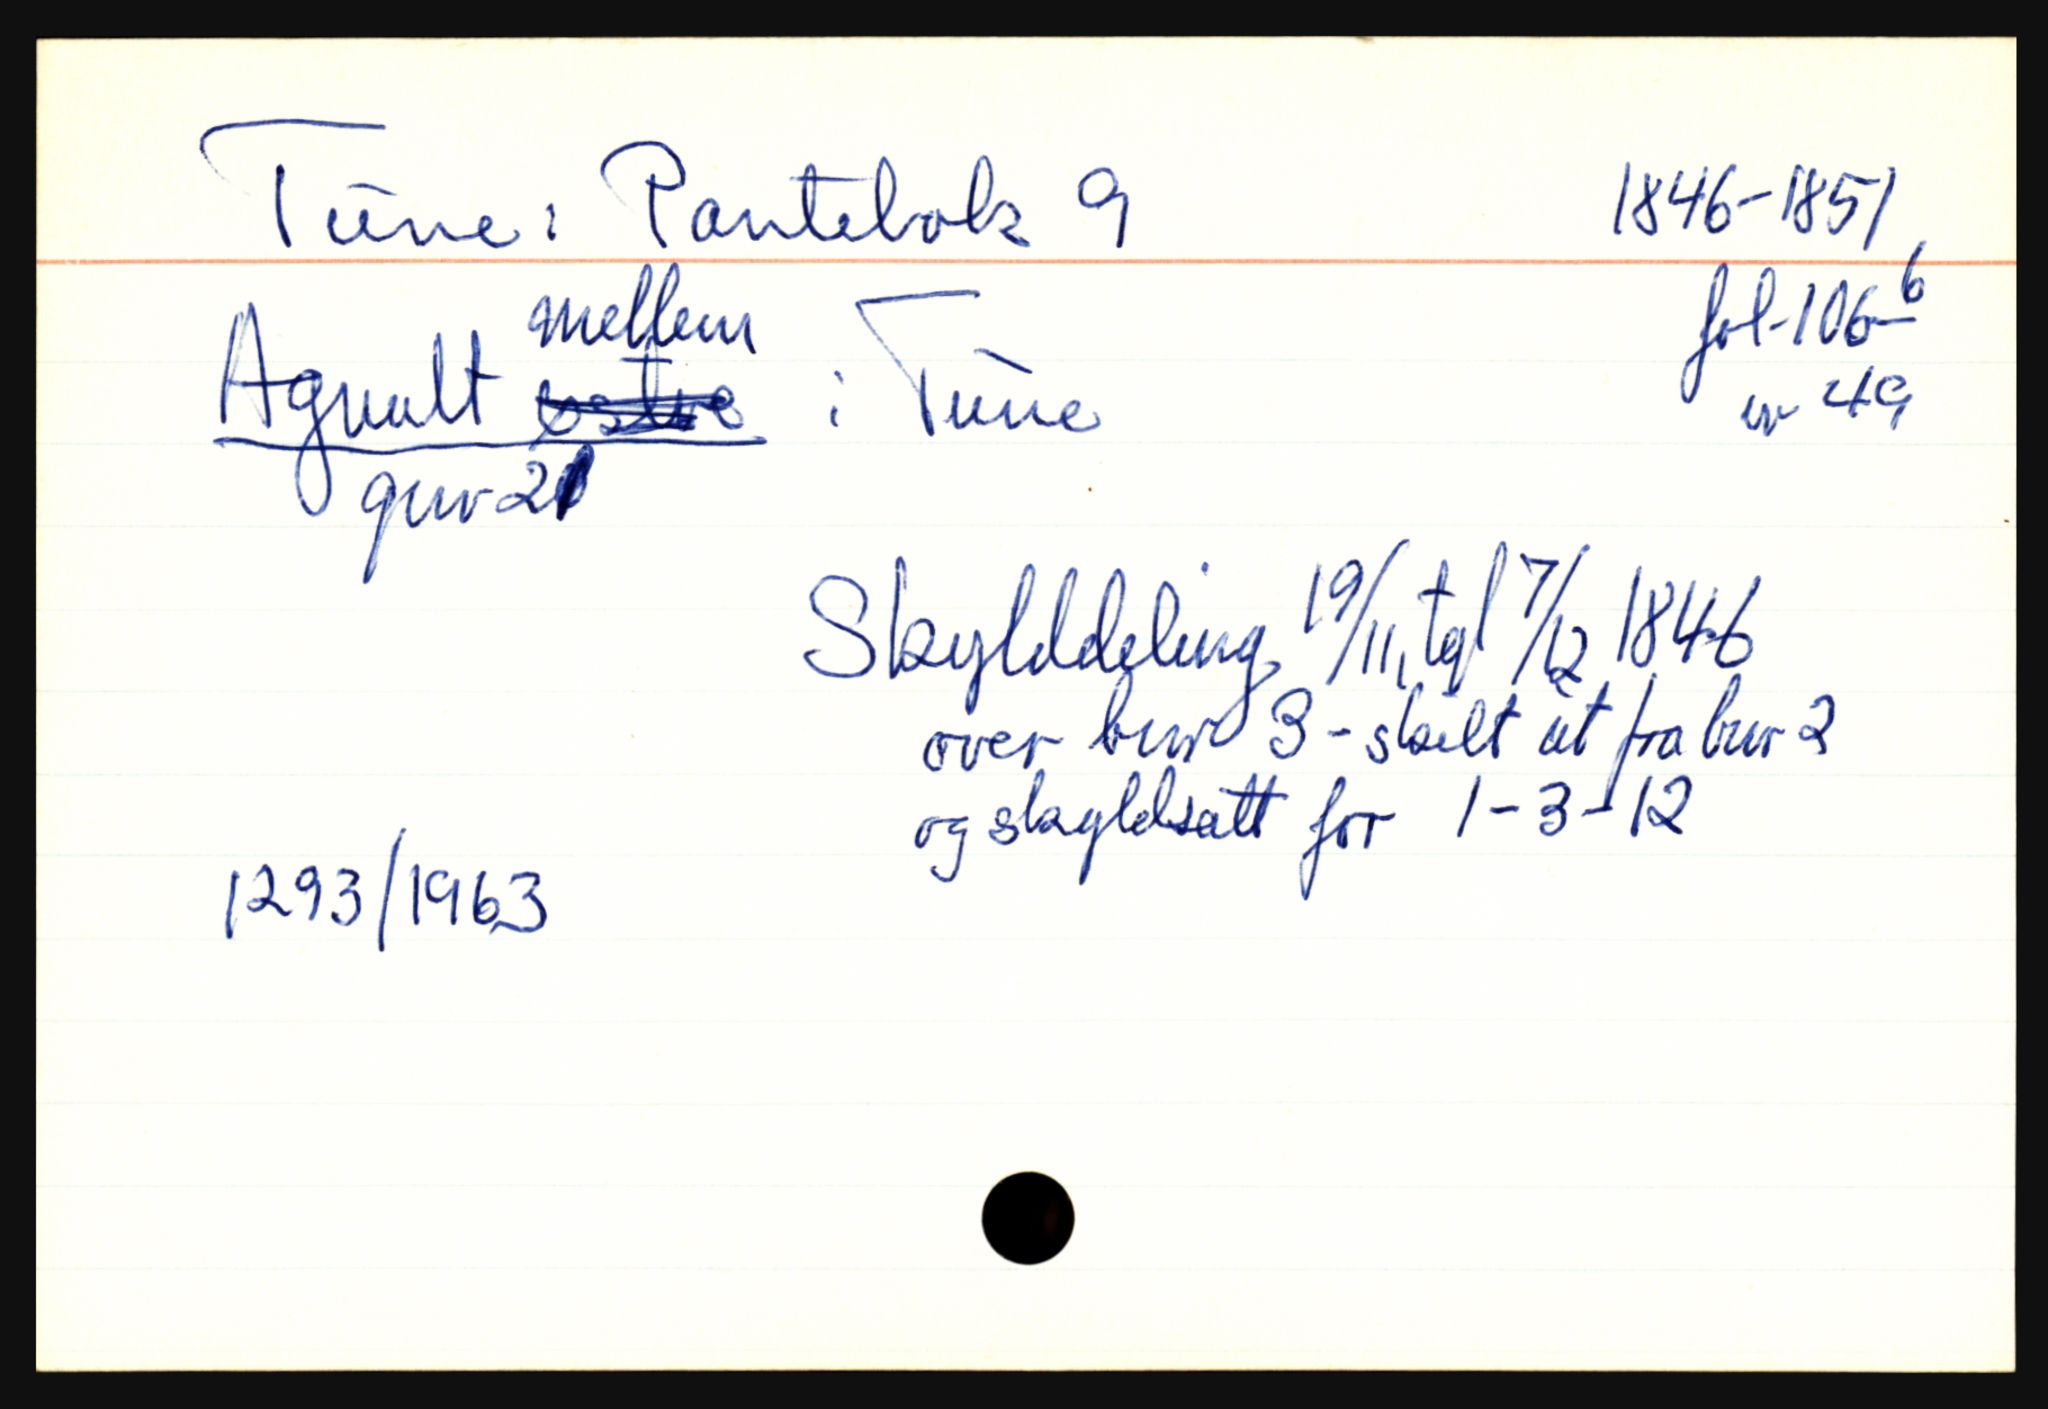 Tune: Pantebok 9 1846-1851
fol. 106 b
nr 49
mellem
Agnalt østre i Tune
gnr 21
Skylddeling 19/11, tgl 7/12 1846
over bnr 3 - skilt ut fra bnr 2
og skyldsatt for 1-3-12
1293/1963